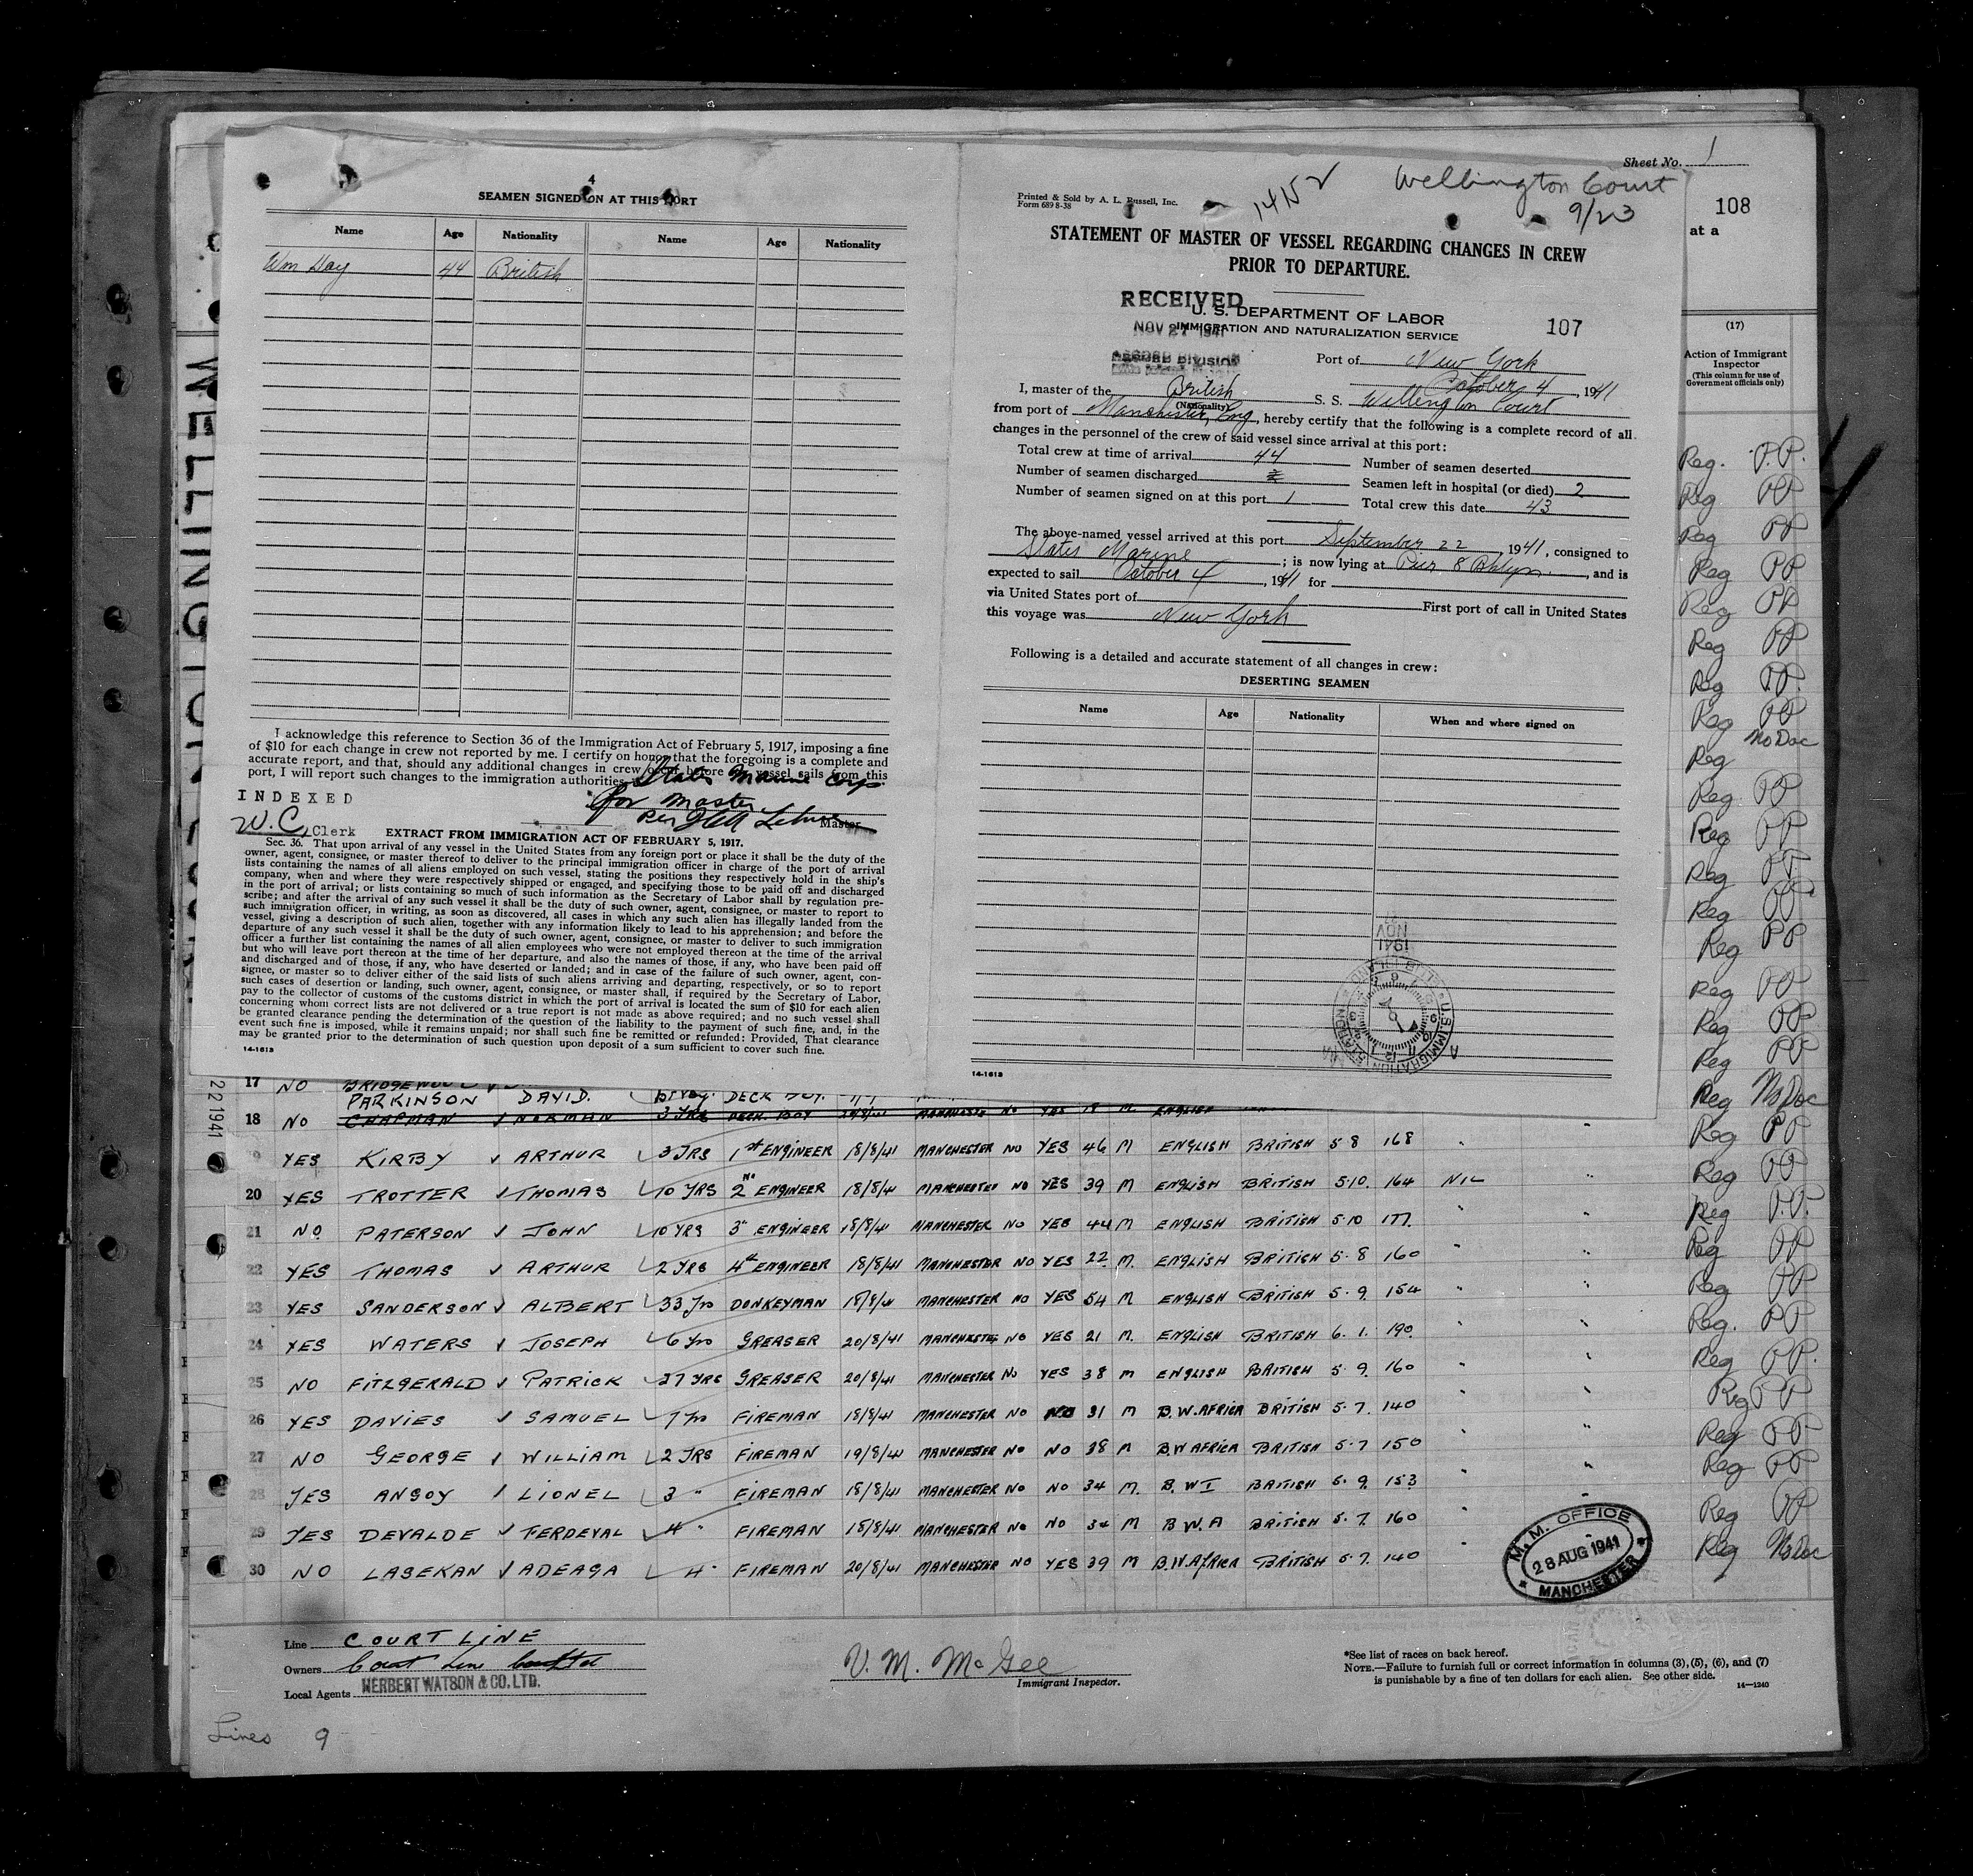 Sheet No. 1
108
at a
4
SEAMEN SIGNED ON AT THIS PORT
Name Age Nationality Name Age Nationality
Wm Hay 44 British
I acknowledge this reference to Section 36 of the Immigration Act of February 5, 1917, imposing a fine
of $10 for each change in crew not reported by me. I certify on honor that the foregoing is a complete and
accurate report, and that, should any additional changes in crew occur before the vessel sails from this
port, I will report such changes to the immigration authorities.
States Marine Corp
for Master
Per
Master
INDEXED
W.C. Clerk
EXTRACT FROM IMMIGRATION ACT OF FEBRUARY 5, 1917.
Sec. 36. That upon arrival of any vessel in the United States from any foreign port or place it shall be the duty of the
owner, agent, consignee, or master thereof to deliver to the principal immigration officer in charge of the port of arrival
lists containing the names of all aliens employed on such vessel, stating the positions they respectively hold in the ship's
company, when and where they were respectively shipped or engaged, and specifying those to be paid off and discharged
in the port of arrival; or lists containing so much of such information as the Secretary of Labor shall by regulation pre-
scribe; and after the arrival of any such vessel it shall be the duty of such owner, agent, consignee, or master to report to
such immigration officer, in writing, as soon as discovered, all cases in which any such alien has illegally landed from the
vessel, giving a description of such alien, together with any information likely to lead to his apprehension; and before the
departure of any such vessel it shall be the duty of such owner, agent, consignee, or master to deliver to such immigration
officer a further list containing the names of all alien employees who were not employed thereon at the time of the arrival
but who will leave port thereon at the time of her departure, and also the names of those, if any, who have been paid off
and discharged and of those, if any, who have deserted or landed; and in case of the failure of such owner, agent, con-
signee, or master so to deliver either of the said lists of such aliens arriving and departing, respectively, or so to report
such cases of desertion or landing, such owner, agent, consignee, or master shall, if required by the Secretary of Labor,
pay to the collector of customs of the customs district in which the port of arrival is located the sum of $10 for each alien
concerning whom correct lists are not delivered or a true report is not made as above required; and no such vessel shall
be granted clearance pending the determination of the question of the liability to the payment of such fine, and, in the
event such fine is imposed, while it remains unpaid; nor shall such fine be remitted or refunded: Provided, That clearance
may be granted prior to the determination of such question upon deposit of a sum sufficient to cover such fine.
14-1613
Printed & Sold by A. L. Russell, Inc.
Form 689 8-38
Wellington Court
9/23
STATEMENT OF MASTER OF VESSEL REGARDING CHANGES IN CREW
PRIOR TO DEPARTURE.
RECEIVED
U. S. DEPARTMENT OF LABOR
NOV 27 1941
IMMIGRATION AND NATURALIZATION SERVICE
107
RECORD DIVISION
Port of New York
October 4, 1941
I, master of the British S. S. Wellington Court
(Nationality)
from port of Manchester, Eng, hereby certify that the following is a complete record of all
changes in the personnel of the crew of said vessel since arrival at this port:
Total crew at time of arrival 44 Number of seamen deserted
Number of seamen discharged Seamen left in hospital (or died) 2
Number of seamen signed on at this port 1 Total crew this date 43
The above-named vessel arrived at this port September 22, 1941, consigned to
States Marine; is now lying at Pier 8 Bklyn., and is
expected to sail October 4, 1941 for
via United States port of First port of call in United States
this voyage was New York
Following is a detailed and accurate statement of all changes in crew:
DESERTING SEAMEN
Name Age Nationality When and where signed on
NOV
1941
U.S. IMMIGRATION
14-1613
(17)
Action of Immigrant
Inspector
(This column for use of
Government officials only)
Reg. P.P.
Reg PP
Reg PP
Reg PP
Reg PP
Reg PP
Reg P.P.
Reg PP
Reg No Doc
Reg PP
Reg PP
Reg PP
Reg PP
Reg PP
Reg PP
Reg PP
Reg PP
WELLINGTON
22 1941
17 NO BRIDGEWOOD DECK BOY.
PARKINSON DAVID.
18 NO CHAPMAN NORMAN 3 YRS DECK BOY MANCHESTER NO YES 18 M. ENGLISH Reg No Doc
19 YES KIRBY ARTHUR 3 YRS 1st ENGINEER 18/8/41 MANCHESTER NO YES 46 M ENGLISH BRITISH 5 8 168 " " Reg PP
20 YES TROTTER THOMAS 10 YRS 2ND ENGINEER 18/8/41 MANCHESTER NO YES 39 M ENGLISH BRITISH 5.10. 164 NIL " Reg PP
21 NO PATERSON JOHN 10 YRS 3" ENGINEER 18/8/41 MANCHESTER NO YES 44 M ENGLISH BRITISH 5.10 177. " " Reg P.P.
22 YES THOMAS ARTHUR 2 YRS 4th ENGINEER 18/8/41 MANCHESTER NO YES 22 M. ENGLISH BRITISH 5.8 160 " " Reg PP
23 YES SANDERSON ALBERT 33 Yrs DONKEYMAN 18/8/41 MANCHESTER NO YES 54 M ENGLISH BRITISH 5.9. 154 " " Reg PP
24 YES WATERS JOSEPH 6 Yrs GREASER 20/8/41 MANCHESTER NO YES 21 M. ENGLISH BRITISH 6.1. 190. " " Reg. PP
25 NO FITZGERALD PATRICK 27 YRS GREASER 20/8/41 MANCHESTER NO YES 38 M ENGLISH BRITISH 5.9. 160 " " Reg PP.
26 YES DAVIES SAMUEL 7 Yrs FIREMAN 18/8/41 MANCHESTER NO NO 31 M B.W.AFRICA BRITISH 5.7. 140 " " Reg PP
27 NO GEORGE WILLIAM 2 YRS FIREMAN 19/8/41 MANCHESTER NO NO 38 M B.W AFRICA BRITISH 5.7 150 " " Reg PP
28 YES ANGOY LIONEL 3 " FIREMAN 18/8/41 MANCHESTER NO NO 34 M. B. W I BRITISH 5.9. 153 " " Reg PP
29 YES DEVALDE FERDEVAL 4 " FIREMAN 18/8/41 MANCHESTER NO NO 34 M B W. A BRITISH 5.7. 160 " Reg PP
30 NO LASEKAN ADEAGA 4 " FIREMAN 20/8/41 MANCHESTER NO YES 39 M B.W.AFRICA BRITISH 5.7. 140 " Reg No Doc
M. M. OFFICE
28 AUG 1941
MANCHESTER
Line COURT LINE
Owners Court Line
Local Agents HERBERT WATSON & CO. LTD.
V. M. McGee
Immigrant Inspector.
*See list of races on back hereof.
NOTE.—Failure to furnish full or correct information in columns (3), (5), (6), and (7)
is punishable by a fine of ten dollars for each alien. See other side.
14—1240
Lines 9